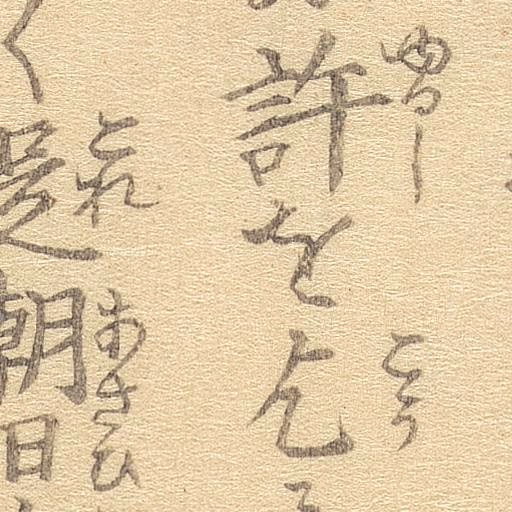 許を乞
ゆるし
こう
是朝日
これ
あさひ